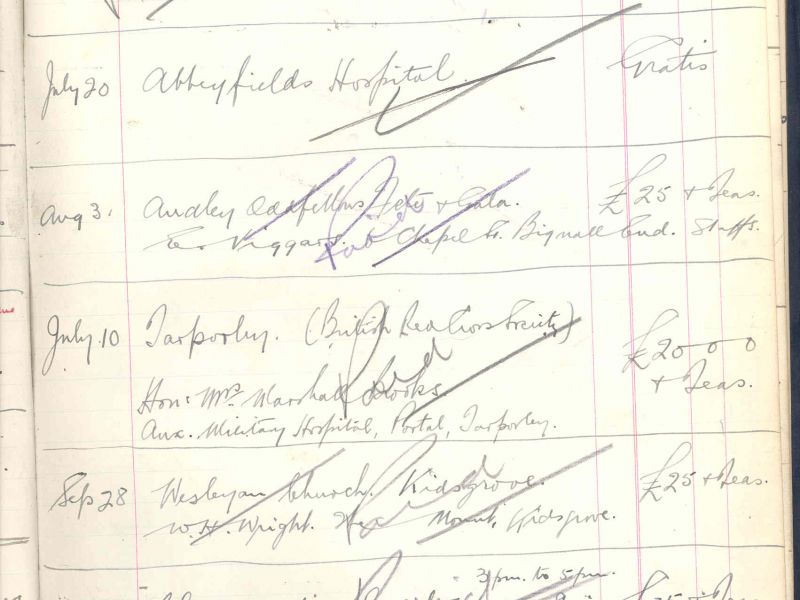 July 20 Abbeyfields Hospital Gratis
Aug 3. Audley Oddfellows Fete & Gala. £25 + Teas.
E. Viggars. Chapel St. Bignall End. Staffs.
July 10 Tarporley. (British Red Cross Society) £20 0 0
+ Teas.
Hon: Mrs. Marshall Brooks.
Aux. Military Hospital, Portal, Tarporley.
Sep 28 Wesleyan Church. Kidsgrove. £25 + Teas.
W.H. Wright. Mount, Kidsgrove.
3 p.m. to 5 p.m.